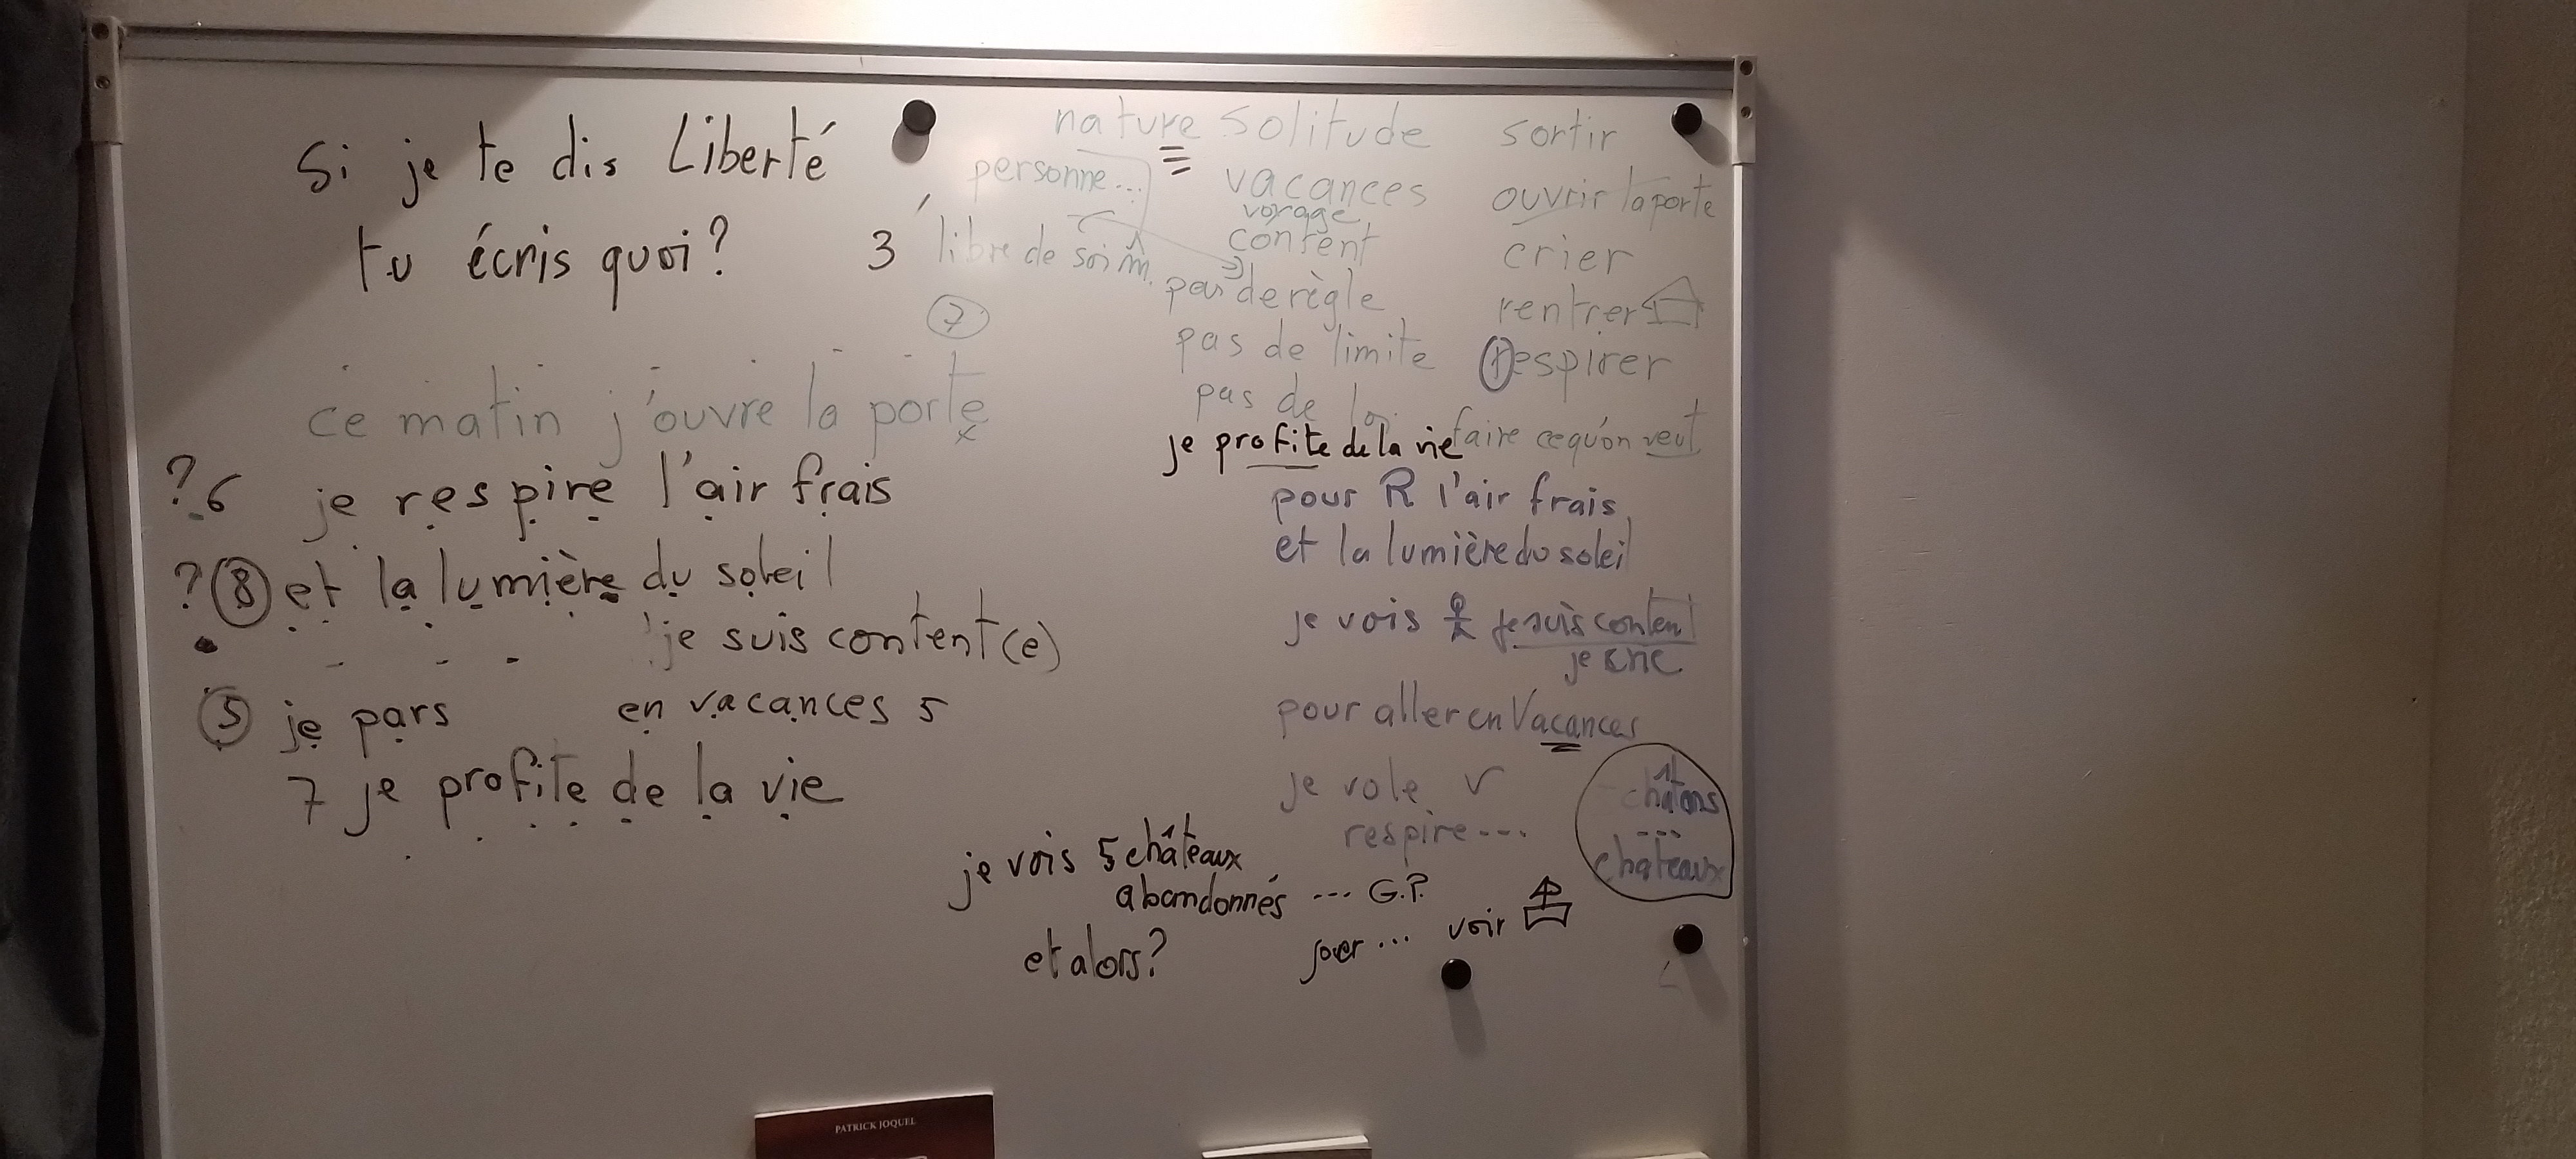 Si je te dis Liberté
tu écris quoi?
3
nature solitude
personne...
vacances
voyage
libre de soi m.
content
pas de règle
pas de limite
pas de loi
sortir
ouvrir la porte
crier
rentrer
respirer
faire ce qu'on veut
7
ce matin j'ouvre la porte
?6 je respire l'air frais
?8 et la lumière du soleil
je suis content(e)
5 je pars en vacances 5
7 je profite de la vie
je profite de la vie
pour R l'air frais
et la lumière du soleil
je vois je suis content
je crie
pour aller en Vacances
je vole V
respire ---
chatons
---
chateaux
je vois 5 châteaux
abandonnés --- G.P.
et alors?
jouer ... voir
PATRICK JOQUEL